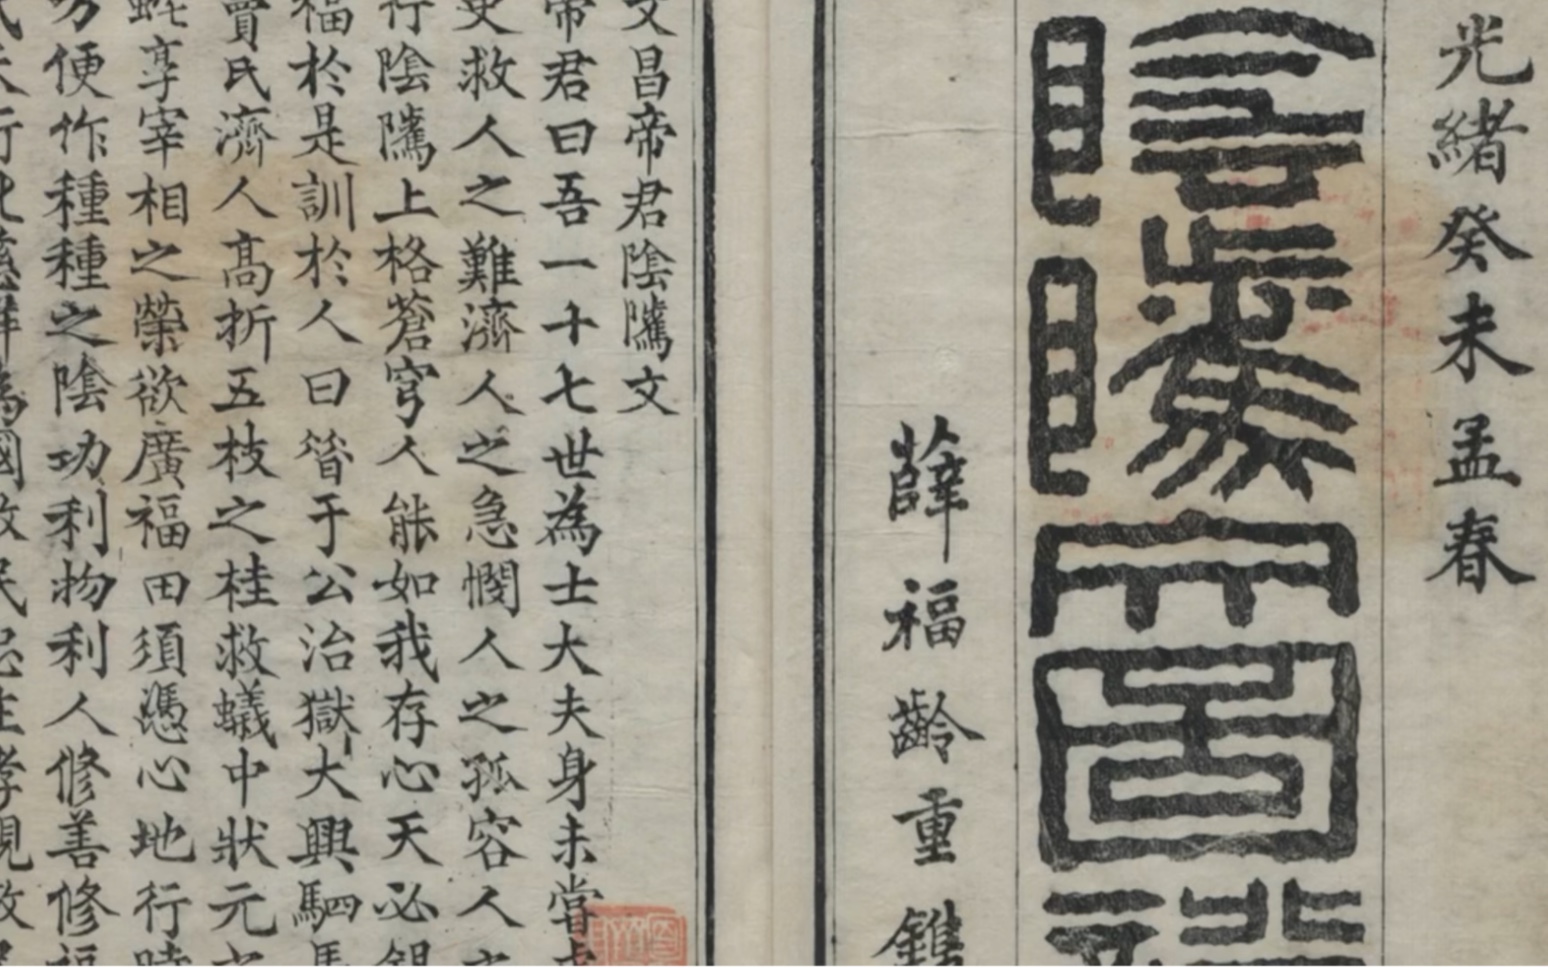 光緒癸未孟春
陰隲文圖
薛福齡重鐫
文昌帝君陰隲文
帝君曰吾一十七世為士大夫身未嘗虐
吏救人之難濟人之急憫人之孤容人之
行陰隲上格蒼穹人能如我存心天必錫
福於是訓於人曰昝于公治獄大興駟馬
竇氏濟人高折五枝之桂救蟻中狀元之
蛇享宰相之榮欲廣福田須憑心地行時
方便作種種之陰功利物利人修善修福
天行化慈祥為國救民忠主孝親敬